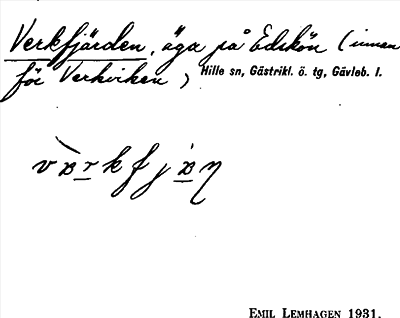 Verkfjärden, äga på Edskön (innan
för Verkviken) Hille sn, Gästrikl. ö. tg, Gävleb. l.
EMIL LEMHAGEN 1931.